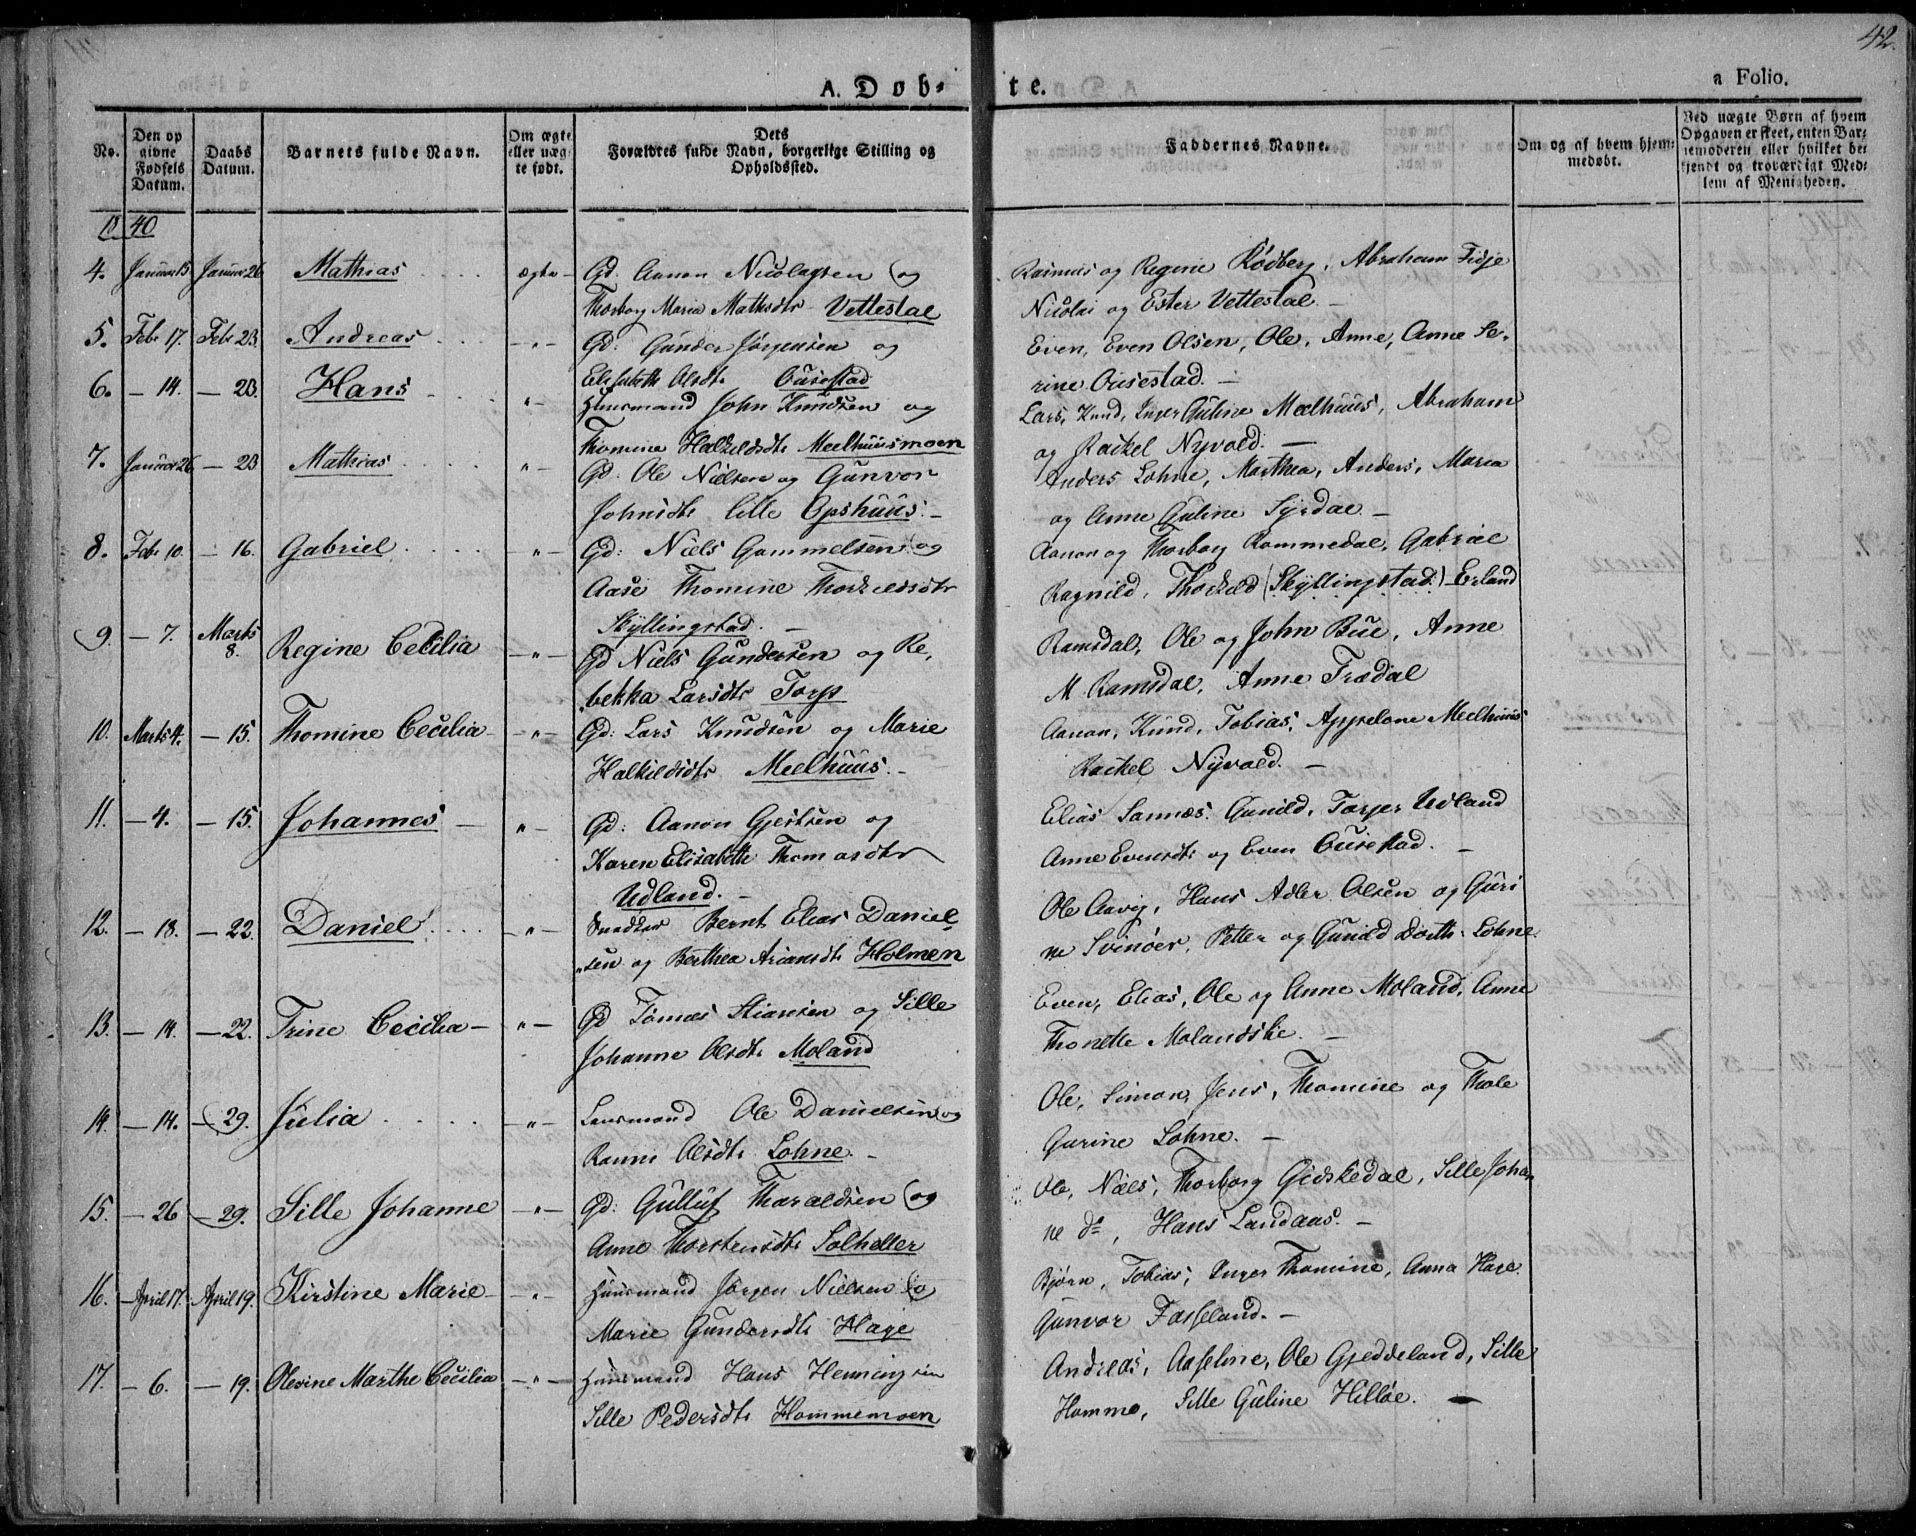 42.
a Folio.
A. Døb-
te.
No.
Den op
givne
Fødsels
Datum.
Daabs
Datum.
Barnets fulde Navn.
Om ægte
eller uæg-
te født.
Dets
Forældres fulde Navn, borgerlige Stilling og
Opholdssted.
Faddernes Navne.
Om og af hvem hjem-
medøbt.
Ved uægte Børn af hvem
Opgaven er skeet, enten Bar-
nemoderen eller hvilket be-
kjendt og troværdigt Med-
lem af Menigheden.
1840
4. Januar 15 Januar 26 Mathias ægte Gd. Aanon Nicolaysen og
Thorborg Maria Mathsdtr Vettestal
Rasmus og Regine Rødberg, Abraham Fidje
Nicolai og Ester Vettestal
5. Febr 17. Febr 23. Andreas - " - Gd: Gunder Jørgensen og
Elisabeth Olsdtr Ousestad
Even, Even Olsen, Ole, Anne, Anne Se-
rine Ousestad. -
6. - 14. - 23 Hans " - Huusmand John Knudsen og
Thomine Halkildsdtr Meelhuusmoen
Lars, Knud, Inger Guline Mælhuus, Abraham
og Rackel Nyvold. -
7. Januar 26 - 23 Mathias " - Gd. Ole Nielsen og Gunvor
Johnsdtr Lille Opshuus. -
Anders Lohne, Marthea, Anders, Maria
og Anne Guline Syrdal -
8. Febr 10. - 16. Gabriel - " - Gd: Niels Gammelsen og
Aase Thomine Thorkildsdtr
Skyllingstad. -
Aanon og Thorborg Rommedal, Gabriel
Ragnild, Thorkild (Skyllingstad) Erland
9. - 7. Marts 8. Regine Cecilia - " - Gd Niels Gundersen og Re,
bekka Larsdtr Torp
Ramsdal, Ole og John Bue, Anne
M Ramsdal, Anne Trædal
10. Marts 4. - 15. Thomine Cecilia - - " - Gd: Lars Knudsen og Marie
Halkildsdtr Meelhuus. -
Aanon, Knud, Tobias, Appelone Meelhuus
Rackel Nyvold. -
11. - 4. - 15. Johannes - " - Gd: Aanon Gjestsen og
Karen Elisabeth Thomasdtr
Udland. -
Elias Sannæs. Gunild, Torjer Udland
Anne Evensdtr og Even Ousestad. -
12. - 13. - 22. Daniel - " - Bernt Elias Daniel
sen og Berthea Ariansdtr Holmen
Ole Aavig, Hans Adler Olsen og Guri
ne Svinøer, Petter og Gunild Dorth: Lohne
13. - 14. - 22. Trine Cecilia - " - Gd Tønnes Stiansen og Sille
Johanne Olsdtr Moland
Even, Elias, Ole og Anne Moland, Anne
Thonette Molandslie. -
14. - 14. - 29. Julia - " - Lensmand Ole Danielsen og
Ranni Olsdtr Lohne. -
Ole, Simon, Jens, Thomine og Thale
Gurine Lohne. -
15. - 26 - 29. Sille Johanne - " - Gd: Gulluf Tharaldsen og
Anne Thorstensdtr Solheller
Ole, Niels, Thorborg Gidskedal, Sille Johan
ne do, Hans Landaas. -
16. April 17. April 19. Kirstine Marie - " - Huusmand Jørgen Nielsen o
Marie Gundersdtr Hage
Bjørn, Tobias, Inger Thomine, Anna Hage
Gunvor Fasseland. -
17. - 6. - 19. Olevine Marthe Cecilia - " - Huusmand Hans Henningsen
Sille Pedersdtr Hommemoen
Andreas, Asseline, Ole Gjeddeland, Sille
Homme, Sille Guline Hilløe. -